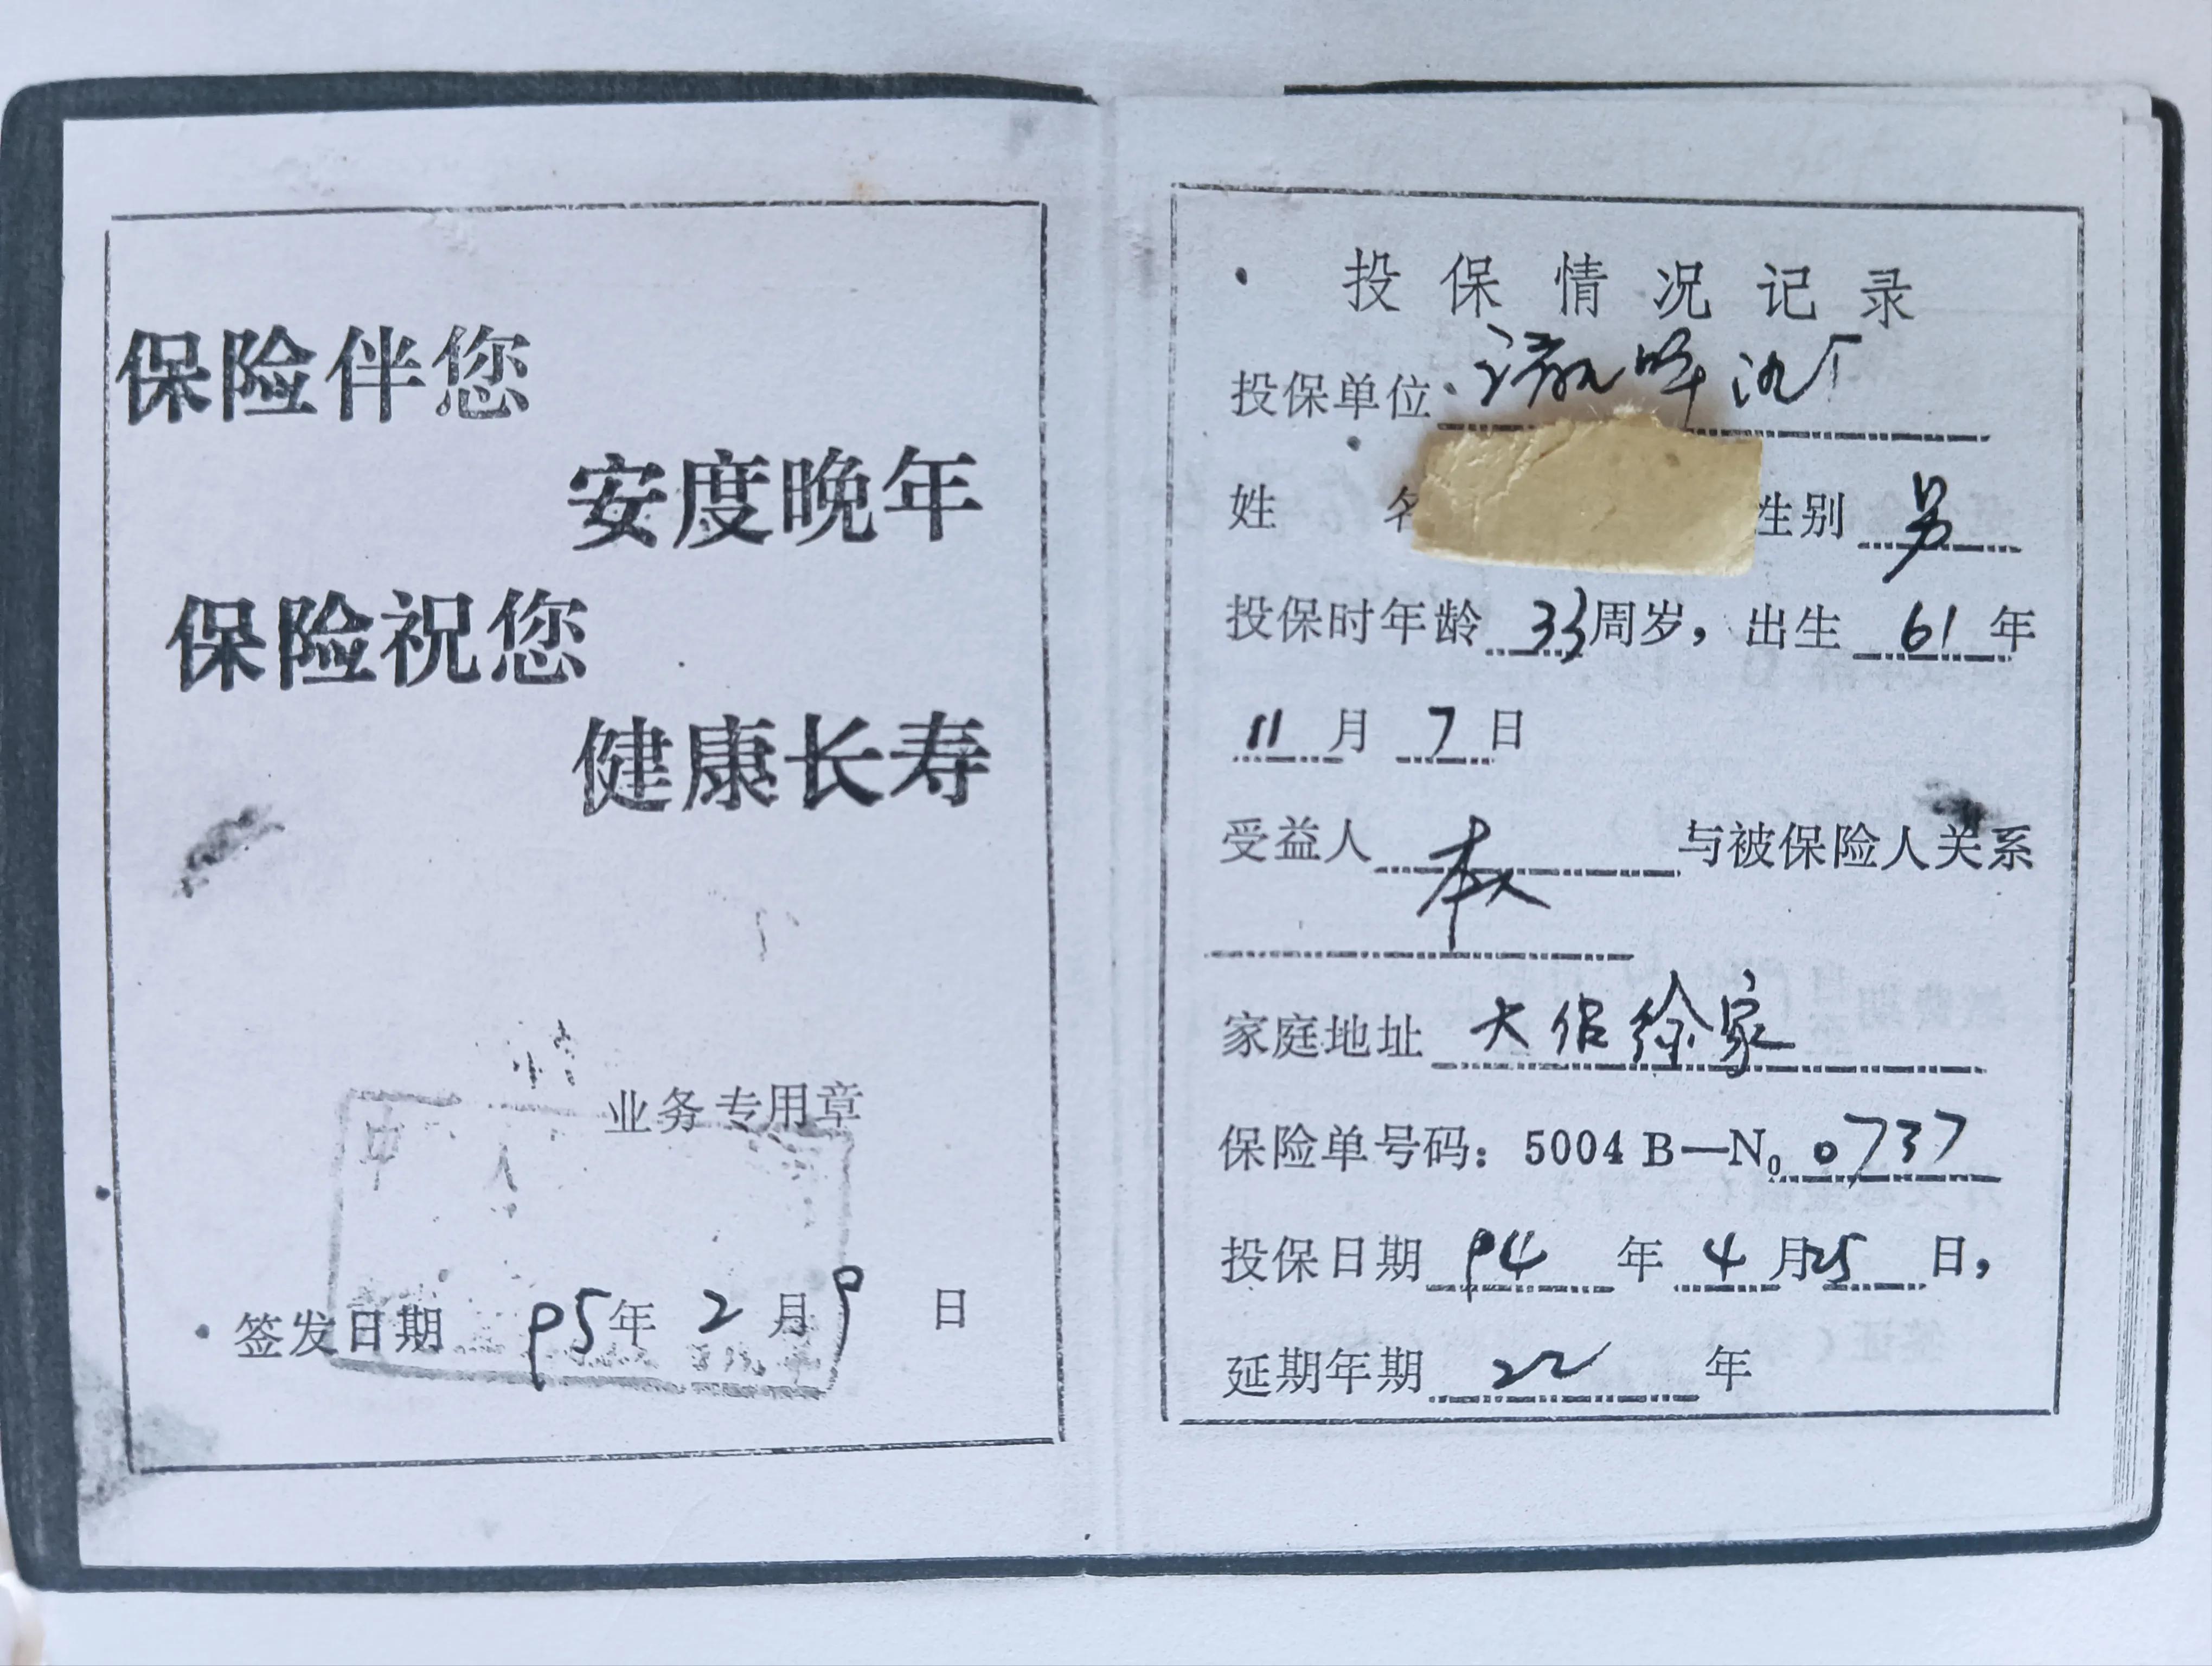 保险伴您
安度晚年
保险祝您
健康长寿
业务专用章
签发日期 95年 2月9日
投保情况记录
投保单位 厂
姓 名 性别 男
投保时年龄 33周岁，出生 61年
11月 7日
受益人 本人 与被保险人关系
家庭地址 大佀徐家
保险单号码：5004 B—N0 0737
投保日期 94年 4月25日，
延期年期 22 年